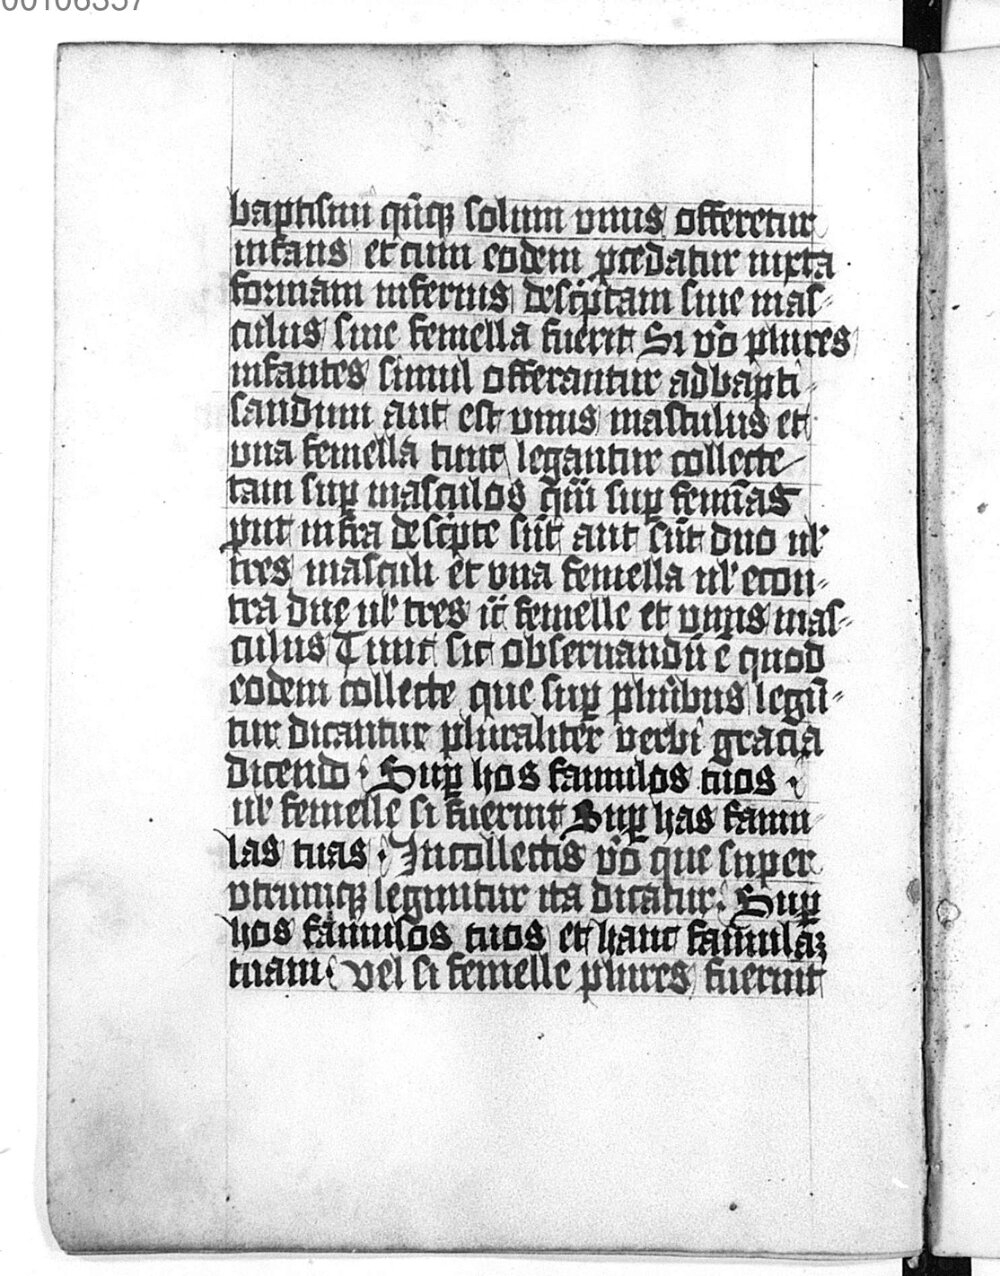 00106357
baptismi qn̄qꝫ solum vnus offeretur
infans et cum eodem ꝓcedatur iuxta
formam inferius desc̓ptam siue mas⸗
culus siue femella fuerit Si vo̓ plures
infantes simul offerantur ad bapti⸗
sandum aut est vnus masculus et
vna femella tunc legantur collecte
tam suꝑ masculos q̄m suꝑ femīas
put infra desc̓pte sūt aut sūt duo ul̓
tres masculi et vna femella ul̓ econ⸗
tra due ul̓ tres femelle et vnus mas⸗
culus Tunc sic obseruandū ē quod
eodem collecte que suꝑ plurībus legū⸗
tur dicantur pluraliter verbi gracia
dicendo · Suꝑ hos famulos tuos ·
ul̓ femelle si fuerint Suꝑ has famu
las tuas · In collectis vo̓ que super
vtrumqꝫ leguntur ita dicatur · Suꝑ
hos famulos tuos et hanc famulaꝫ
tuam · vel si femelle plures fuerint